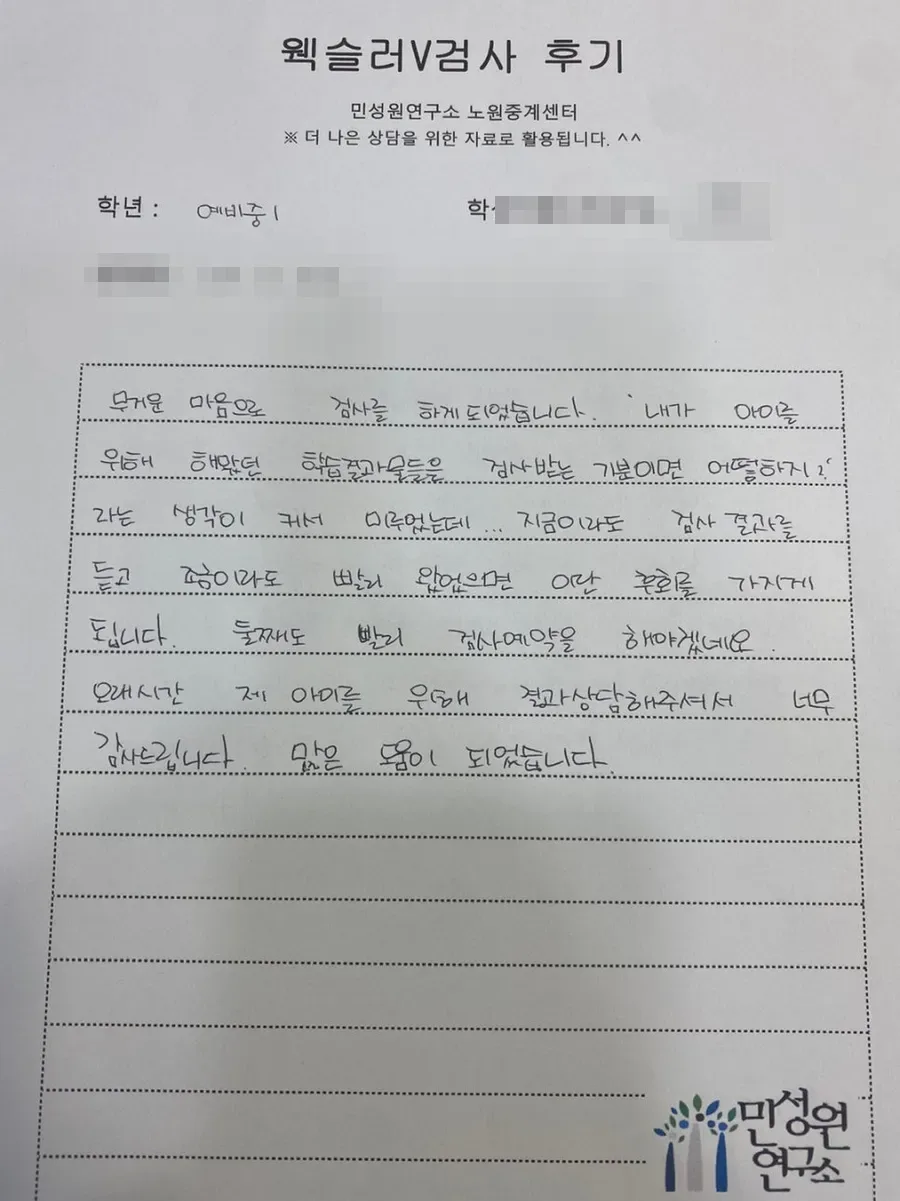 웩슬러V검사 후기
민성원연구소 노원중계센터
※ 더 나은 상담을 위한 자료로 활용됩니다. ^^
학년 : 예비중1 학
무거운 마음으로 검사를 하게 되었습니다. '내가 아이를
위해 해왔던 학습결과물들은 검사받는 기분이면 어떨하지?'
라는 생각이 커서 미루었는데... 지금이라도 검사 결과를
듣고 조금이라도 빨리 왔었으면 이란 후회를 가지게
됩니다. 둘째도 빨리 검사예약을 해야겠네요.
오래시간 제 아이를 위해 결과상담해주셔서 너무
감사드립니다. 많은 도움이 되었습니다.
민성원
연구소